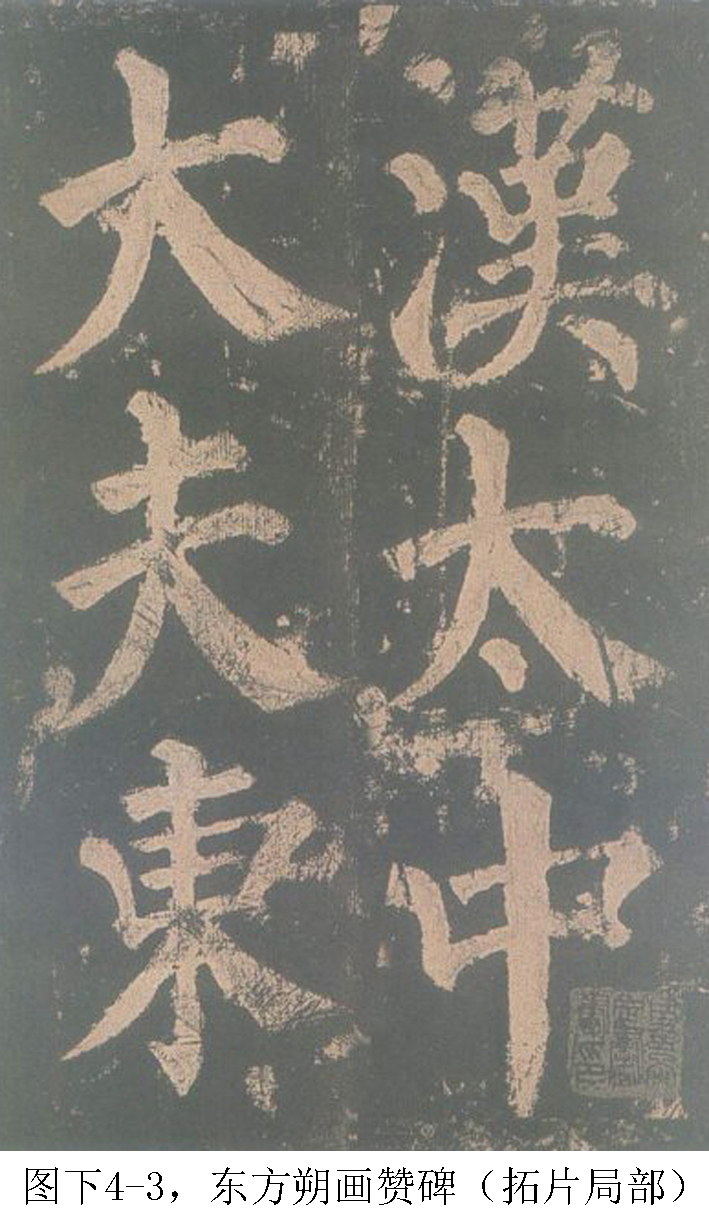 漢太中
大夫東
图下4-3，东方朔画赞碑（拓片局部）